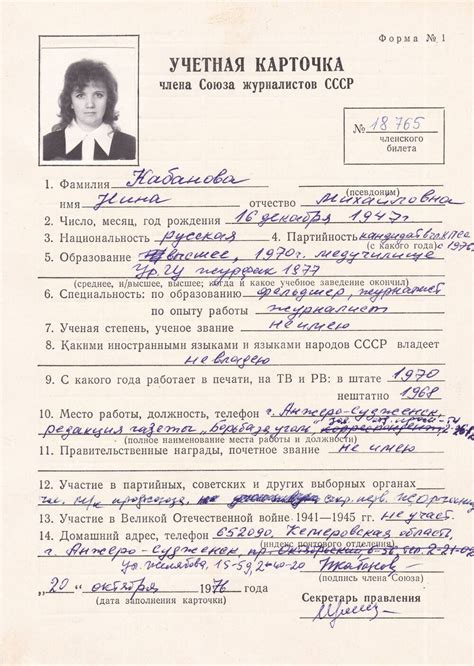 Форма № 1
УЧЕТНАЯ КАРТОЧКА
члена Союза журналистов СССР
№ 18765
членского
билета
1. Фамилия Кабанова
(псевдоним)
имя Нина отчество Михайловна
2. Число, месяц, год рождения 16 декабря 1947г.
3. Национальность русская 4. Партийность кандидат в чл. КПСС
(с какого года) с 1976г.
5. Образование высшее, 1970г. медучилище
УрГУ журфак 1977
(среднее, н/высшее, высшее; когда и какое учебное заведение окончил)
6. Специальность: по образованию фельдшер, журналист
по опыту работы журналист
7. Ученая степень, ученое звание не имею
8. Какими иностранными языками и языками народов СССР владеет
не владею
9. С какого года работает в печати, на ТВ и РВ: в штате 1970
нештатно 1968
10. Место работы, должность, телефон г. Анжеро-Судженск,
редакция газеты „Борьба за уголь" корреспондент
(полное наименование места работы и должности)
11. Правительственные награды, почетное звание не имею
12. Участие в партийных, советских и других выборных органах
чл. профсоюза, секр. перв.
13. Участие в Великой Отечественной войне 1941—1945 гг. не участ.
14. Домашний адрес, телефон 652090, Кемеровская область,
(индекс почтового отделения)
г. Анжеро-Судженск, пр. Октябрьский 6-56, тел. 2-21-02
ул. Желябова, 15-59, 2-40-20
(подпись члена Союза)
„20" октября 1976 года
(дата заполнения карточки)
Секретарь правления